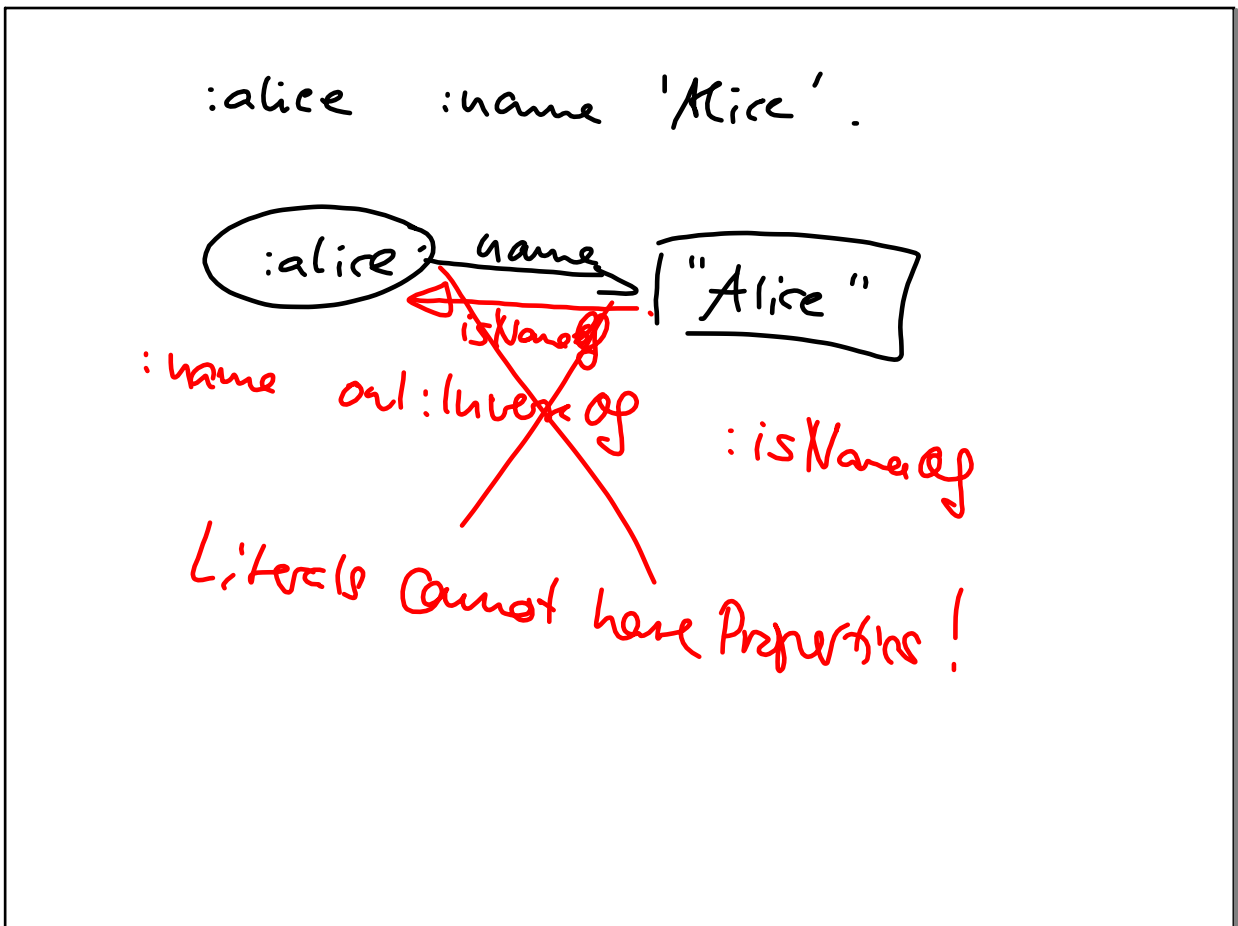 :alice :name 'Alice' .
:alice :name "Alice"
isNameOf
:name owl:InverseOf :isNameOf
Literals Cannot have Properties!